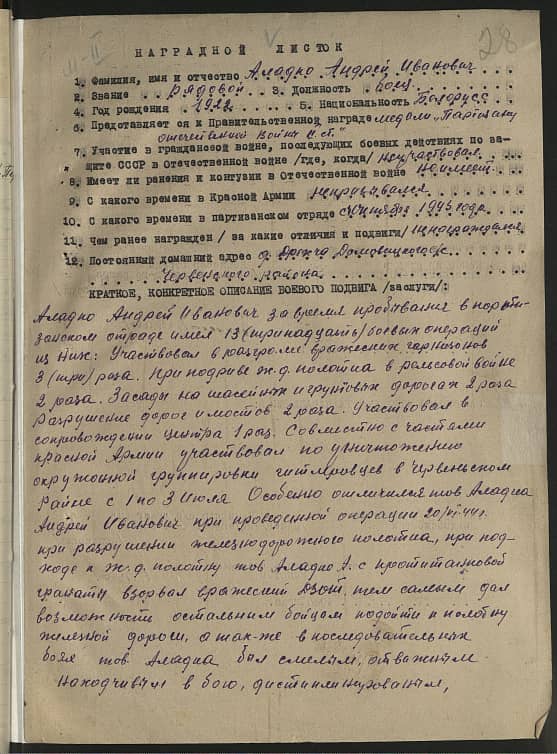 28
НАГРАДНОЙ ЛИСТОК
1. Фамилия, имя и отчество Аладко Андрей Иванович
2. Звание рядовой 3. Должность боец
4. Год рождения 1922 5. Национальность Белорусс
6. Представляет ся к Правительственной награде медали "Партизану
отечественной войны II ст."
7. Участие в гражданской войне, последующих боевых действиях по за-
щите СССР в Отечественной войне /где, когда/ Неучаствовал
8. Имеет ли ранения и контузии в Отечественной войне Неимеет
9. С какого времени в Красной Армии непризывался
10. С какого времени в партизанском отряде с сентября 1943 года
11. Чем ранее награжден /за какие отличия и подвиги/ Ненаграждался
12. Постоянный домашний адрес д.
Червенского района
КРАТКОЕ, КОНКРЕТНОЕ ОПИСАНИЕ БОЕВОГО ПОДВИГА /заслуги/:
Аладко Андрей Иванович за время пребывания в парти-
занском отряде имел 13 (тринадцать) боевых операций
из них: Участвовал в разгроме вражеских гарнизонов
3 (три) раза. При подриве ж.д. полотна в рельсовой войне
2 раза. Засады на шасейных и грунтовых дорогах 2 раза
Разрушение дорог и мостов 2 раза. Участвовал в
сопровождении центра 1 раз. Совместно с частями
красной Армии участвовал по уничтожению
окружоной группировки гитлеровцев в Червеньском
Райне с 1 по 3 Июля Особенно отличился тов Аладка
Андрей Иванович при проведенной операции 20/VI-44г.
при разрушении железнодорожного полотна, при под-
ходе к ж.д. полотну тов Аладко А. с протитанковой
гранаты взорвал вражеский ДЗОТ, тем самым дал
возможность остальным бойцам подойти к полотну
железной дороги, а так-же в последовательных
боях тов Аладка был смелым, отважным
находчивым в бою, дистиплинированым,